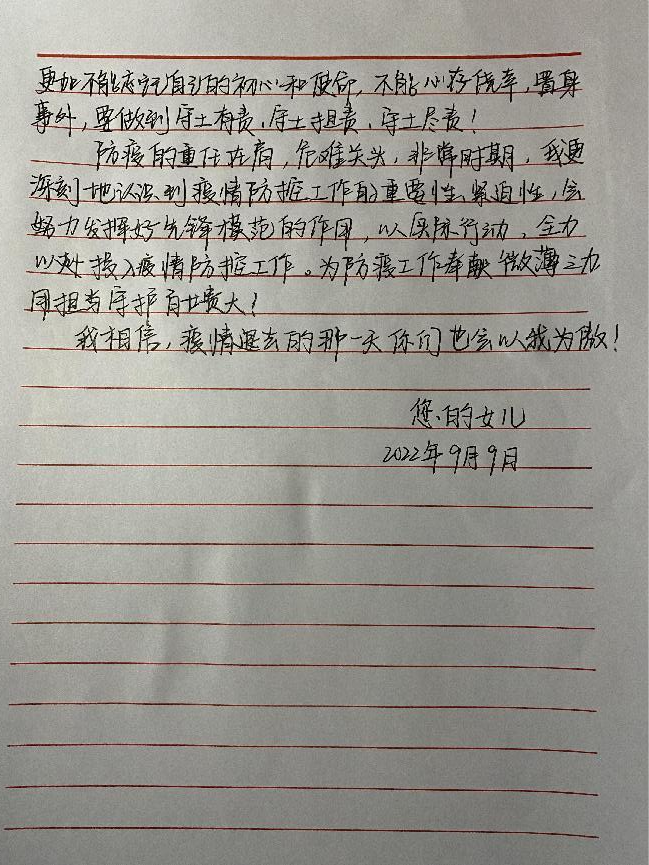 更加不能忘记自己的初心和使命，不能心存侥幸，置身
事外，要做到守土有责、守土担责、守土尽责！
防疫的重任在肩，危难关头，非常时期，我更
深刻地认识到疫情防控工作的重要性、紧迫性，会
努力发挥好先锋模范的作用，以实际行动，全力
以赴投入疫情防控工作。为防疫工作奉献微薄之力
用担当守护
我相信，疫情退去的那一天你们也会以我为傲！
您的女儿
2022年9月9日